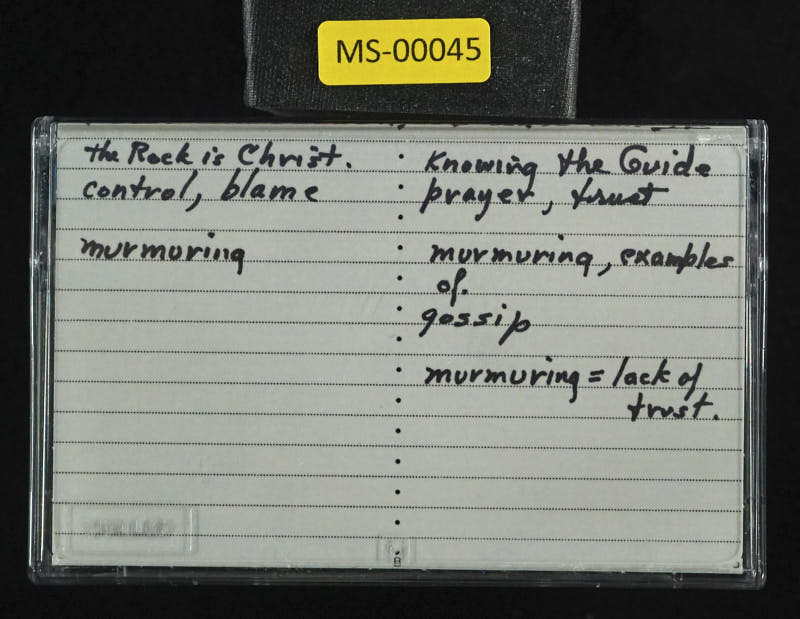 MS-00045
the Rock is Christ.
control, blame
murmuring
Knowing the Guide
prayer, trust
murmuring, examples
of.
gossip
murmuring = lack of
trust.
B